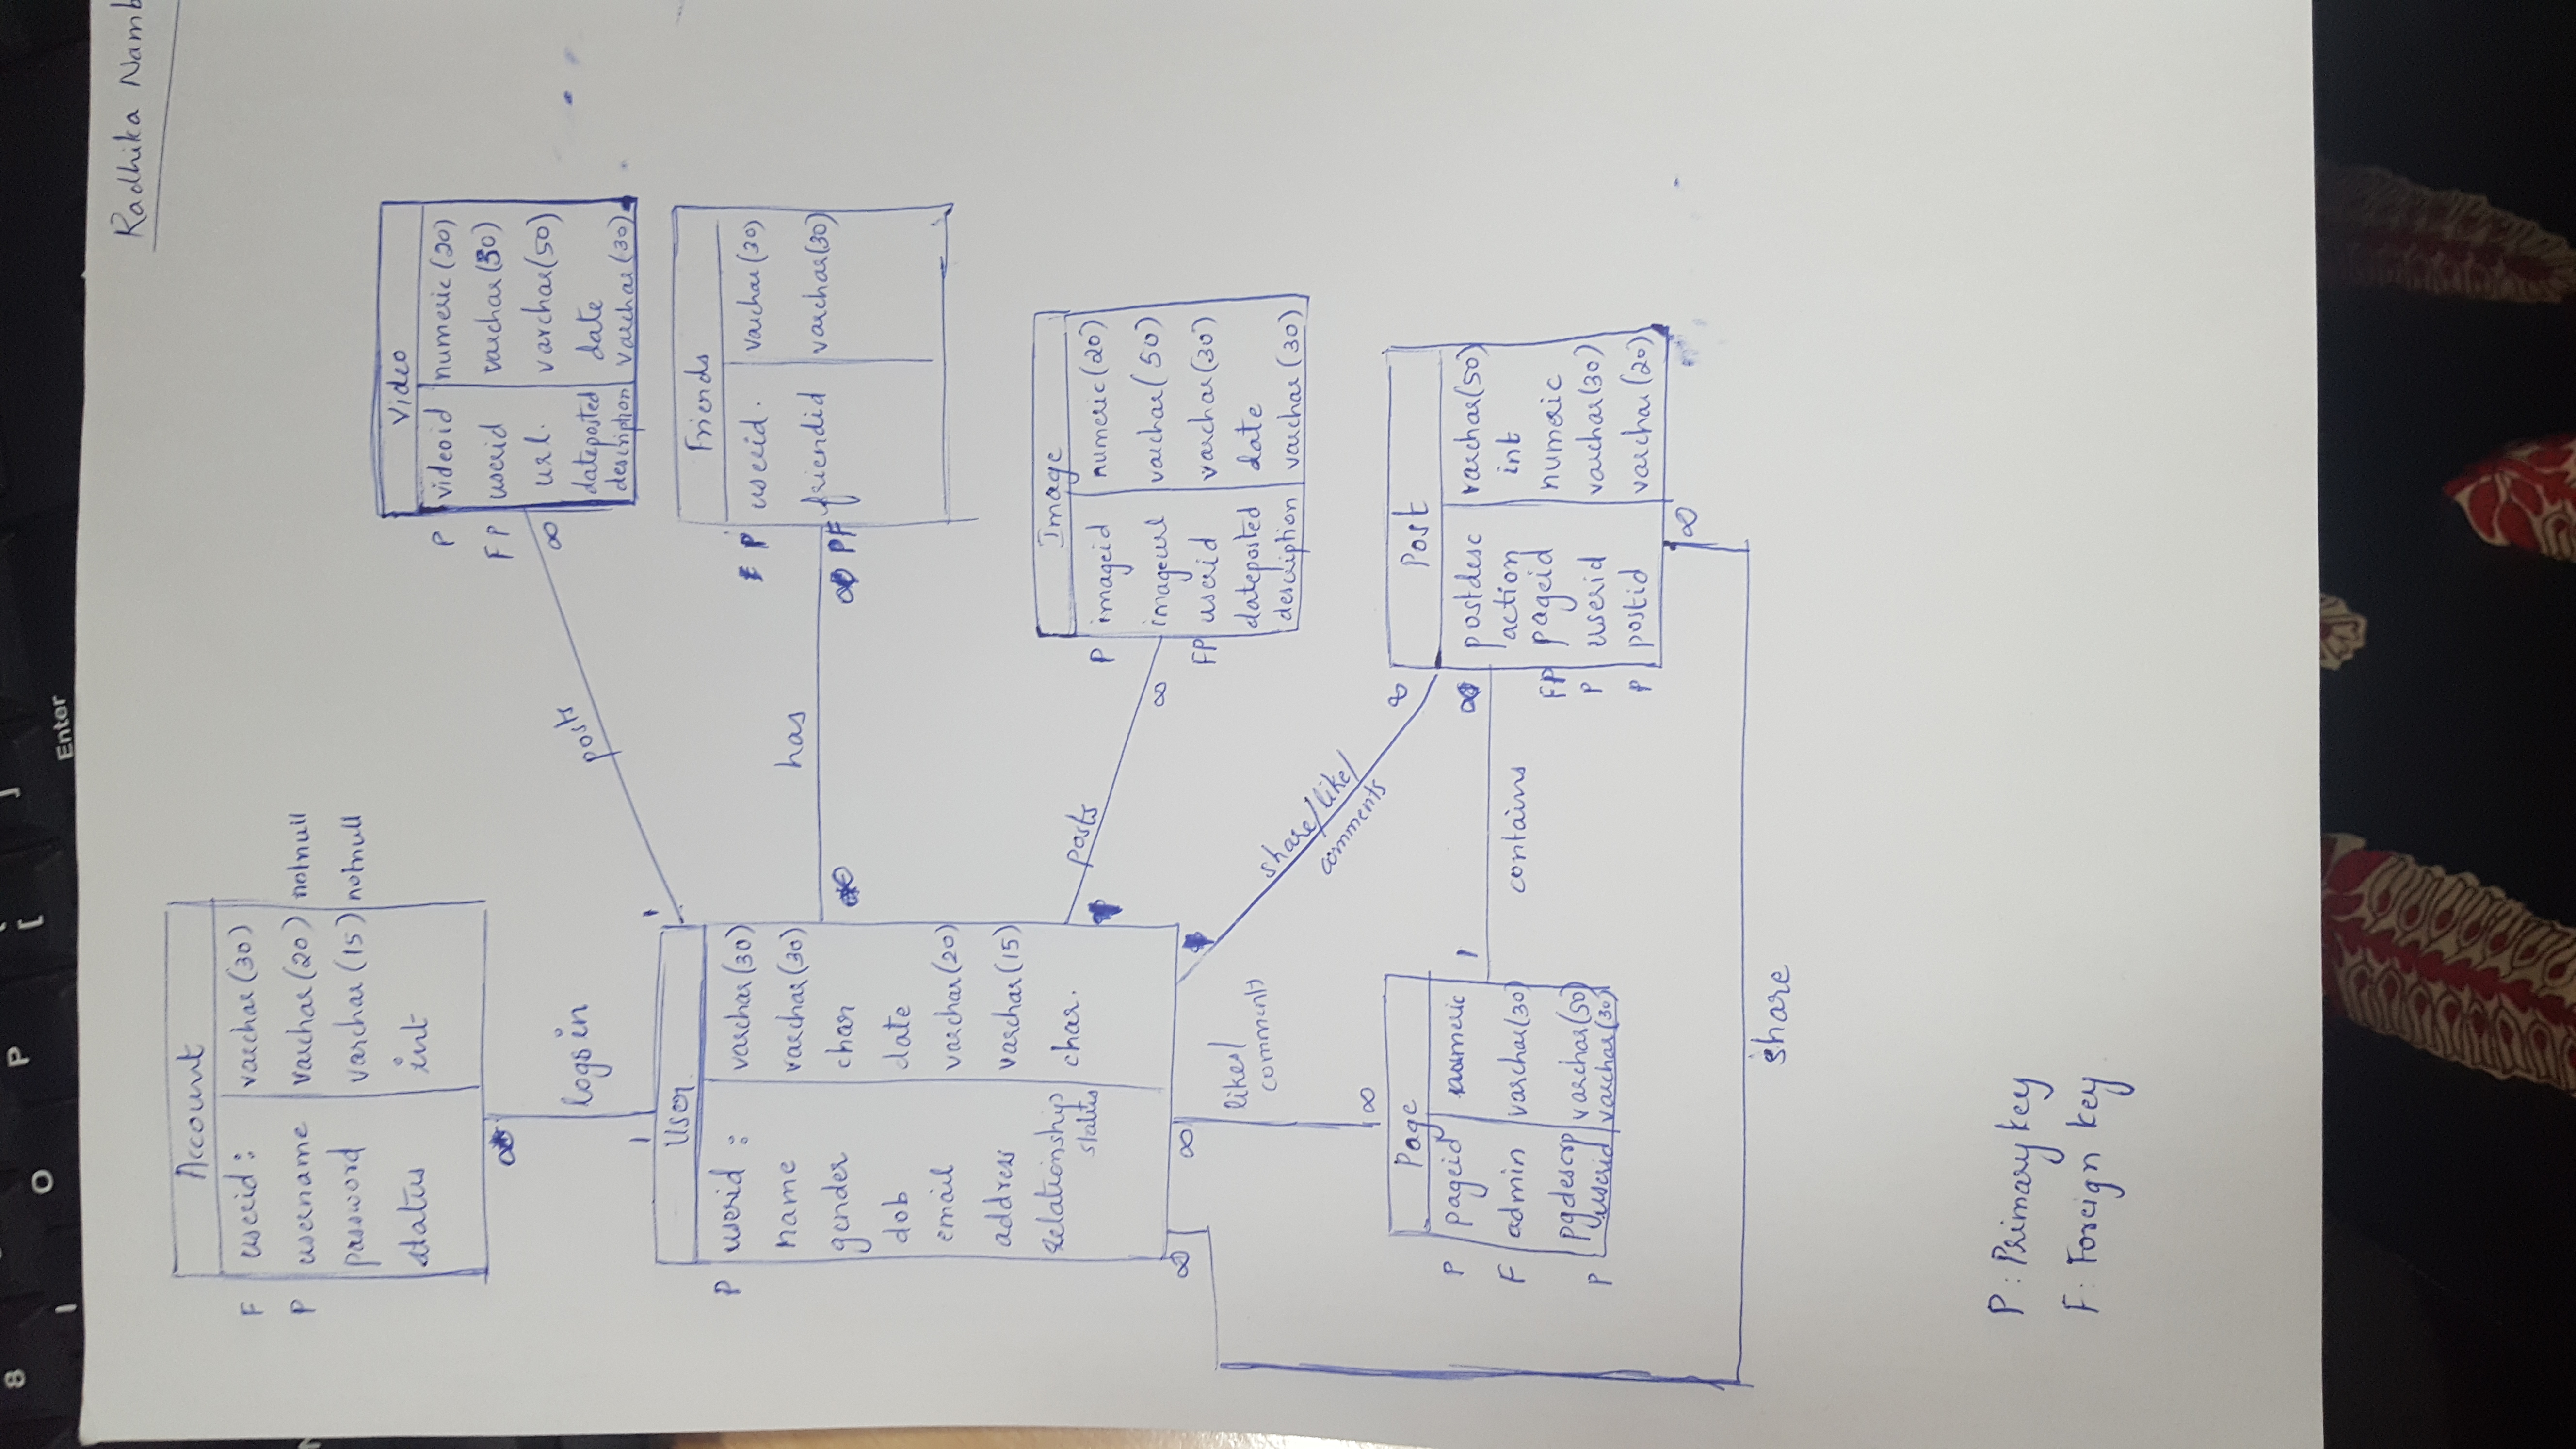 8
P
[
]
I
O
Enter
Radhika Namb
Account
F userid : varchar(30)
P username varchar(20) notnull
password varchar(15) notnull
status int
∞
logs in
1
Video
P videoid numeric(20)
FP userid varchar(30)
url. varchar(50)
dateposted date
description varchar(30)
∞
posts
1
User
P userid : varchar(30)
name varchar(30)
gender char
dob date
email varchar(20)
address varchar(15)
relationship
status char.
Friends
P userid. varchar(30)
PF friendid varchar(30)
has
∞ ∞
posts
∞
Image
P imageid numeric(20)
imageurl varchar(50)
FP userid varchar(30)
dateposted date
description varchar(30)
∞ ∞
likes/
comments
∞
share/like/
comments
∞
Page
P pageid numeric
F admin varchar(30)
pgdescrp varchar(50)
P userid varchar(30)
1 ∞
contains
Post
postdesc varchar(50)
action int
FP pageid numeric
P userid varchar(30)
P postid varchar(20)
∞
share
P : Primary key
F : Foreign key